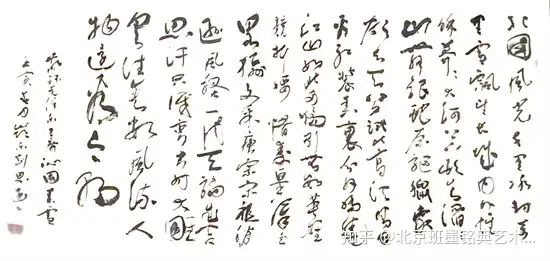 北国风光千里冰封万
里雪飘望长城内外惟
余莽莽大河上下顿失滔滔
山舞银蛇原驰蜡象
欲与天公试比高须晴日
看红装素裹分外妖娆
江山如此多娇引无数英雄
竞折腰惜秦皇汉武
略输文采唐宗宋祖稍
逊风骚一代天骄成吉
思汗只识弯弓射大雕
俱往矣数风流人
物还看今朝
沁园春雪
壬寅
知乎 @北京班墨铭典艺术...